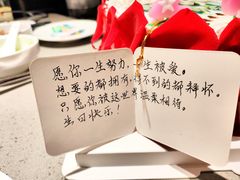 愿你一生努力，一生被爱。
想要的都拥有，得不到的都释怀。
只愿你被这世界温柔相待。
生日快乐！